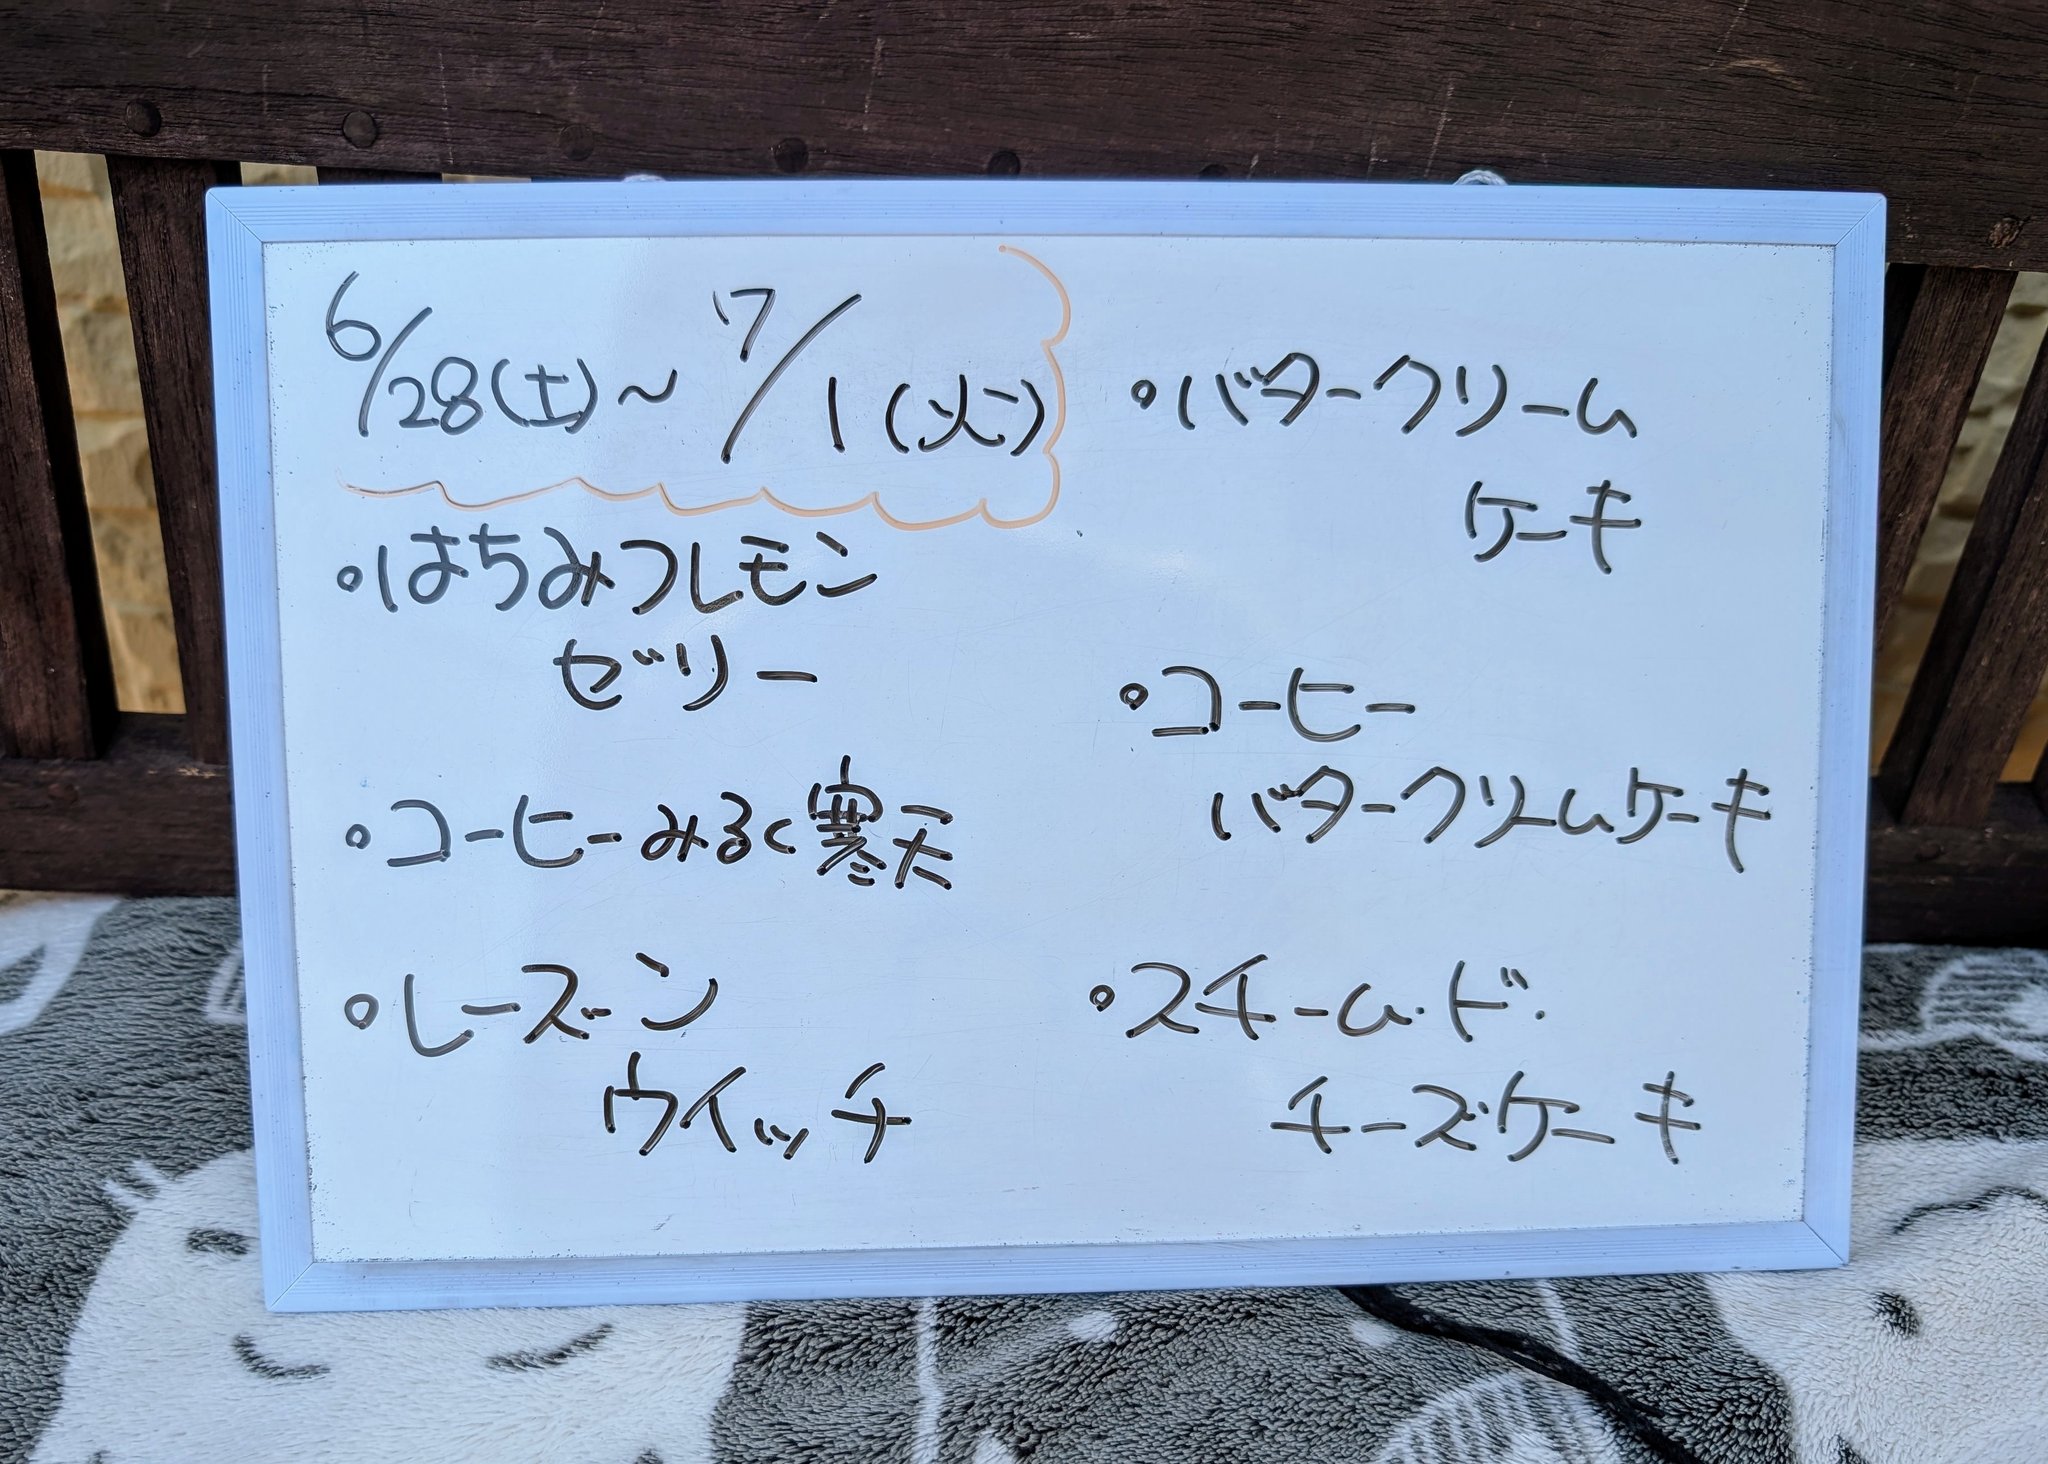 6/28(土)～7/1(火)
・はちみつレモン
ゼリー
・コーヒーみるく寒天
・レーズン
ウイッチ
・バタークリーム
ケーキ
・コーヒー
バタークリームケーキ
・スチーム・ド・
チーズケーキ